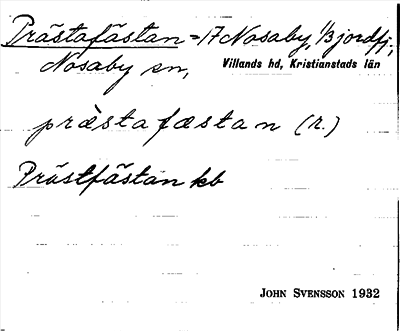 Prästafästan = 17 Nosaby, 1/3 jordfj;
Nosaby sn,
Villands hd, Kristianstads län
præ̀stafæstan (R.)
Prästfästan kb
JOHN SVENSSON 1932